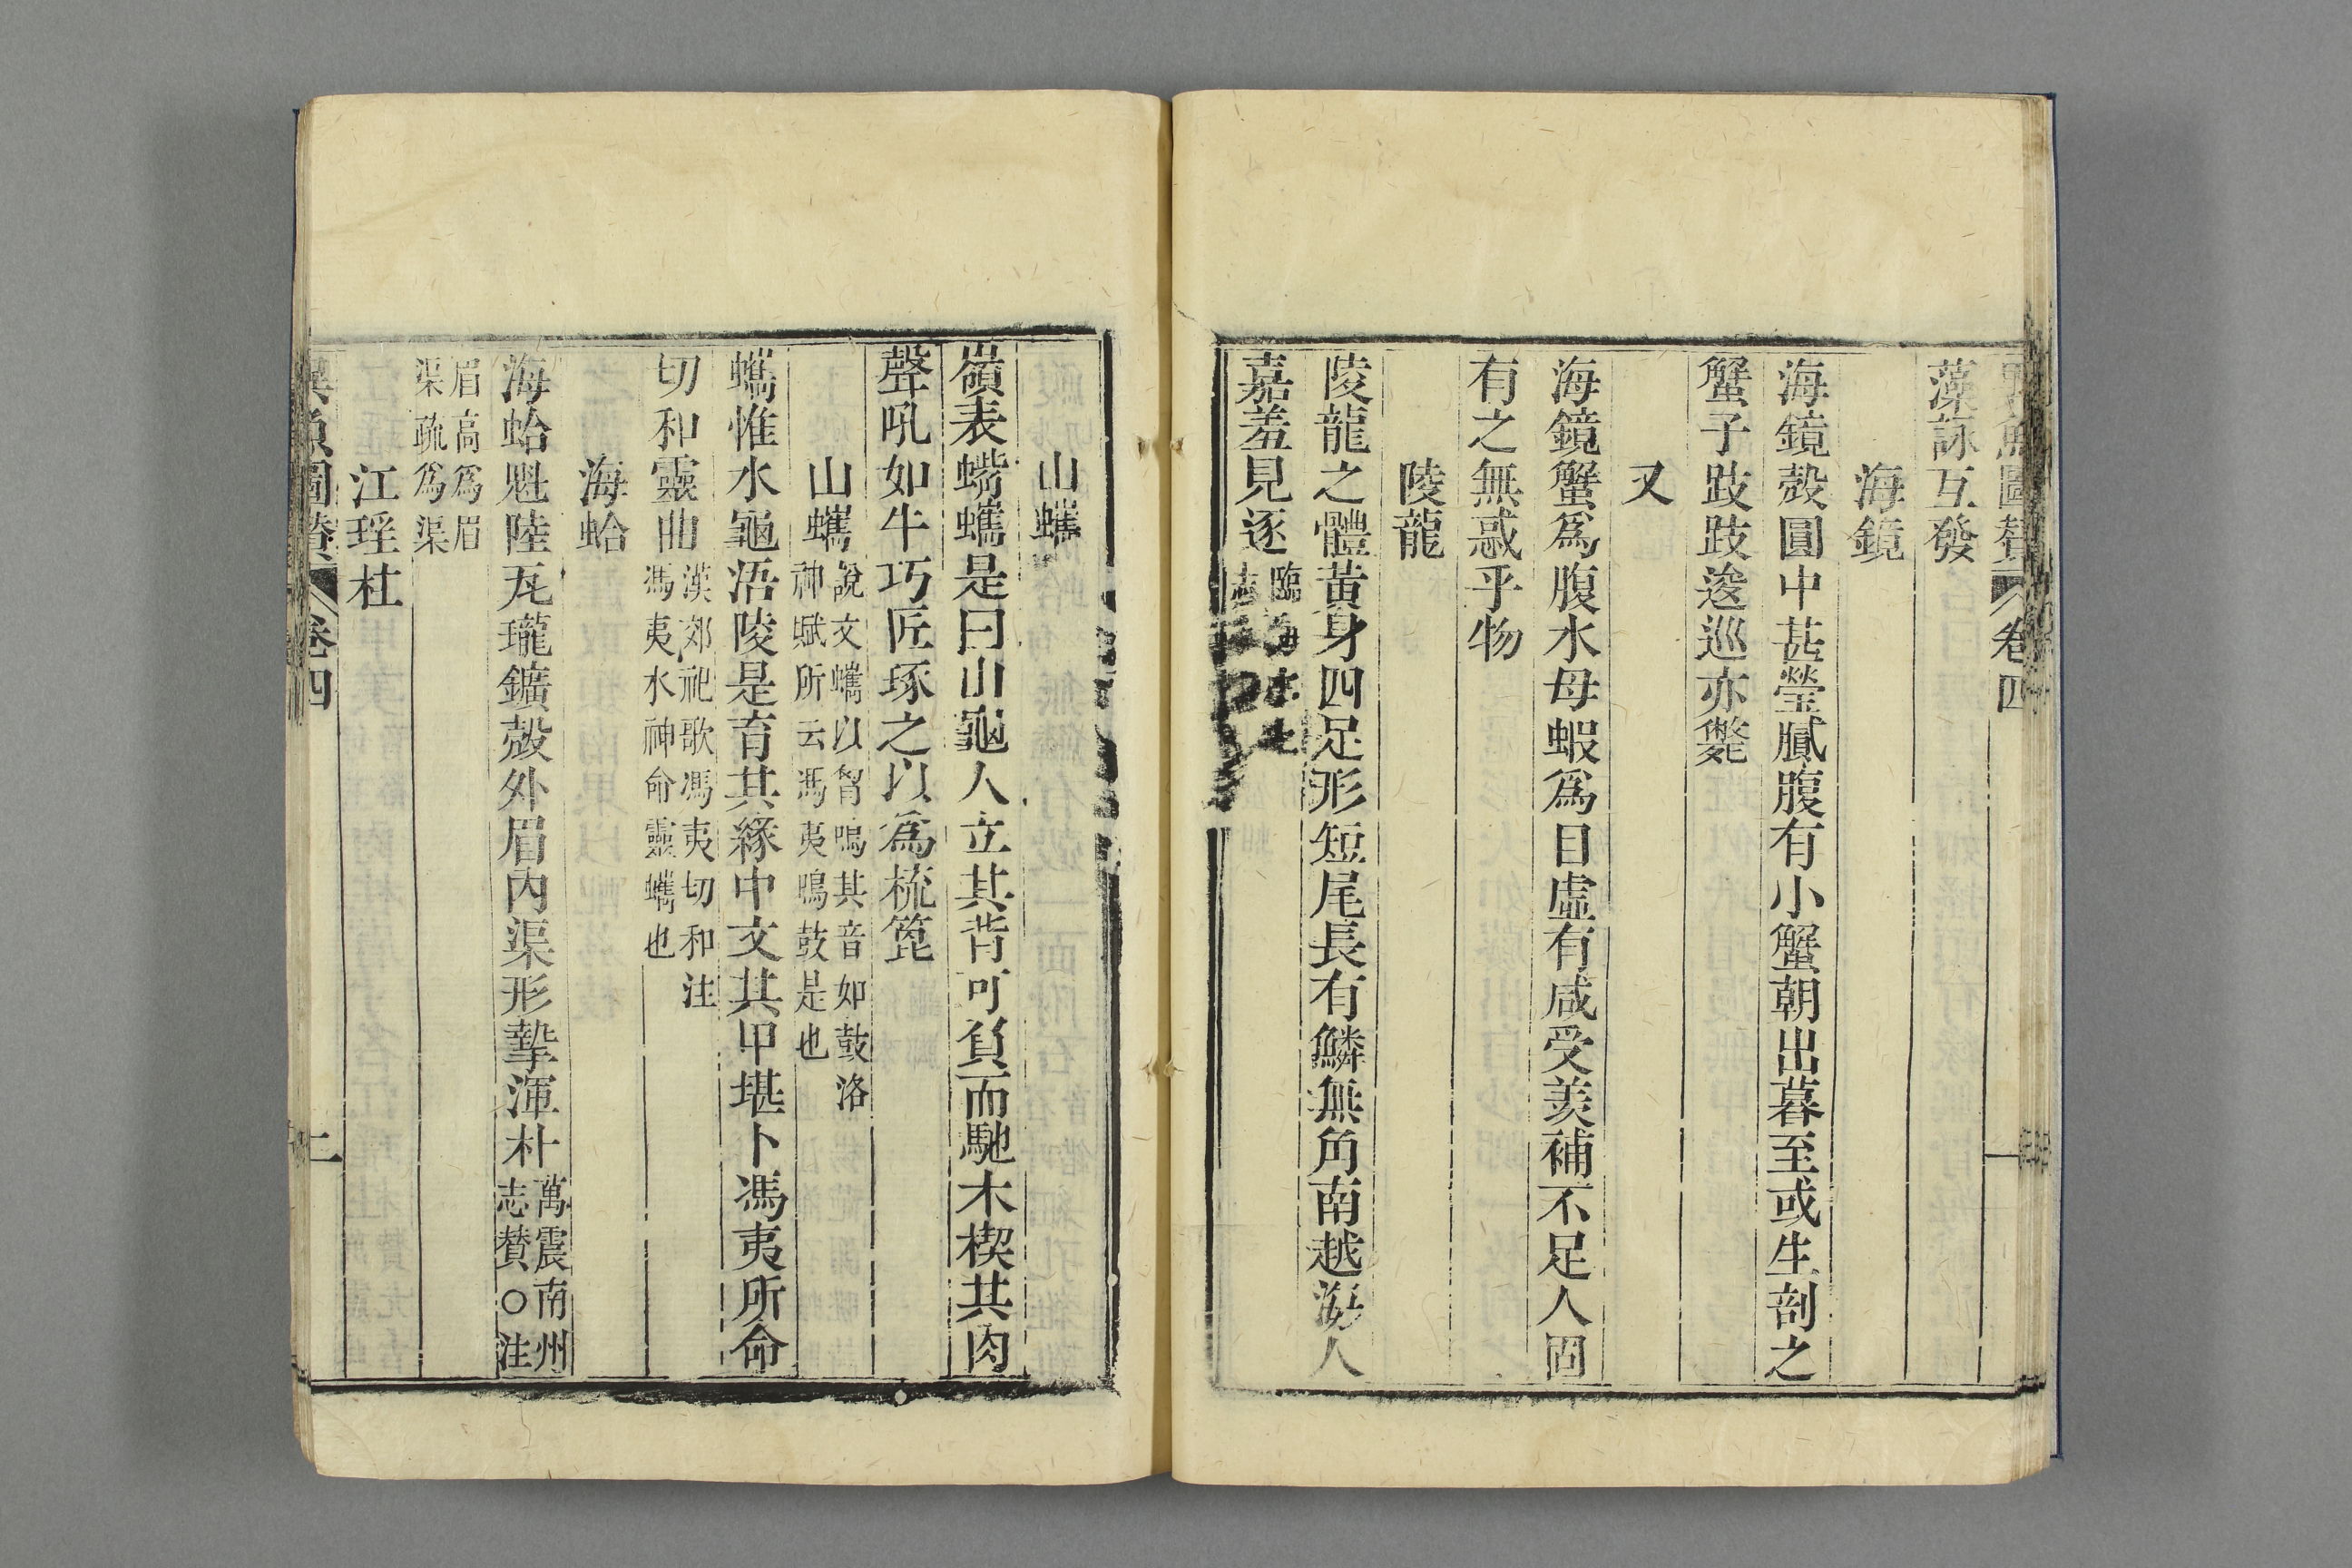 異魚圖贊 卷四
藻詠互發
海鏡
海鏡殼圓中甚瑩膩腹有小蟹朝出暮至或生剖之
蟹子跂跂逡巡亦斃
又
海鏡蟹爲腹水母蝦爲目虛有咸受羨補不足人固
有之無惑乎物
陵龍
陵龍之體黃身四足形短尾長有鱗無角南越游人
嘉羞見逐 臨海水土志
山蠵
嶺表觜蠵是曰山龜人立其背可負而馳木楔其肉
聲吼如牛巧匠琢之以爲梳篦
山蠵 說文蠵以胷鳴其音如鼓洛
神賦所云馮夷鳴鼓是也
蠵惟水龜涪陵是育其緣中文其甲堪卜馮夷所命
切和靈曲 漢郊祀歌馮夷切和注
馮夷水神命靈蠵也
海蛤
海蛤魁陸瓦瓏鑛殼外眉內渠形摯渾朴 萬震南州
志贊○注
眉高爲眉
渠疏爲渠
江珧柱
異魚圖贊 卷四 二